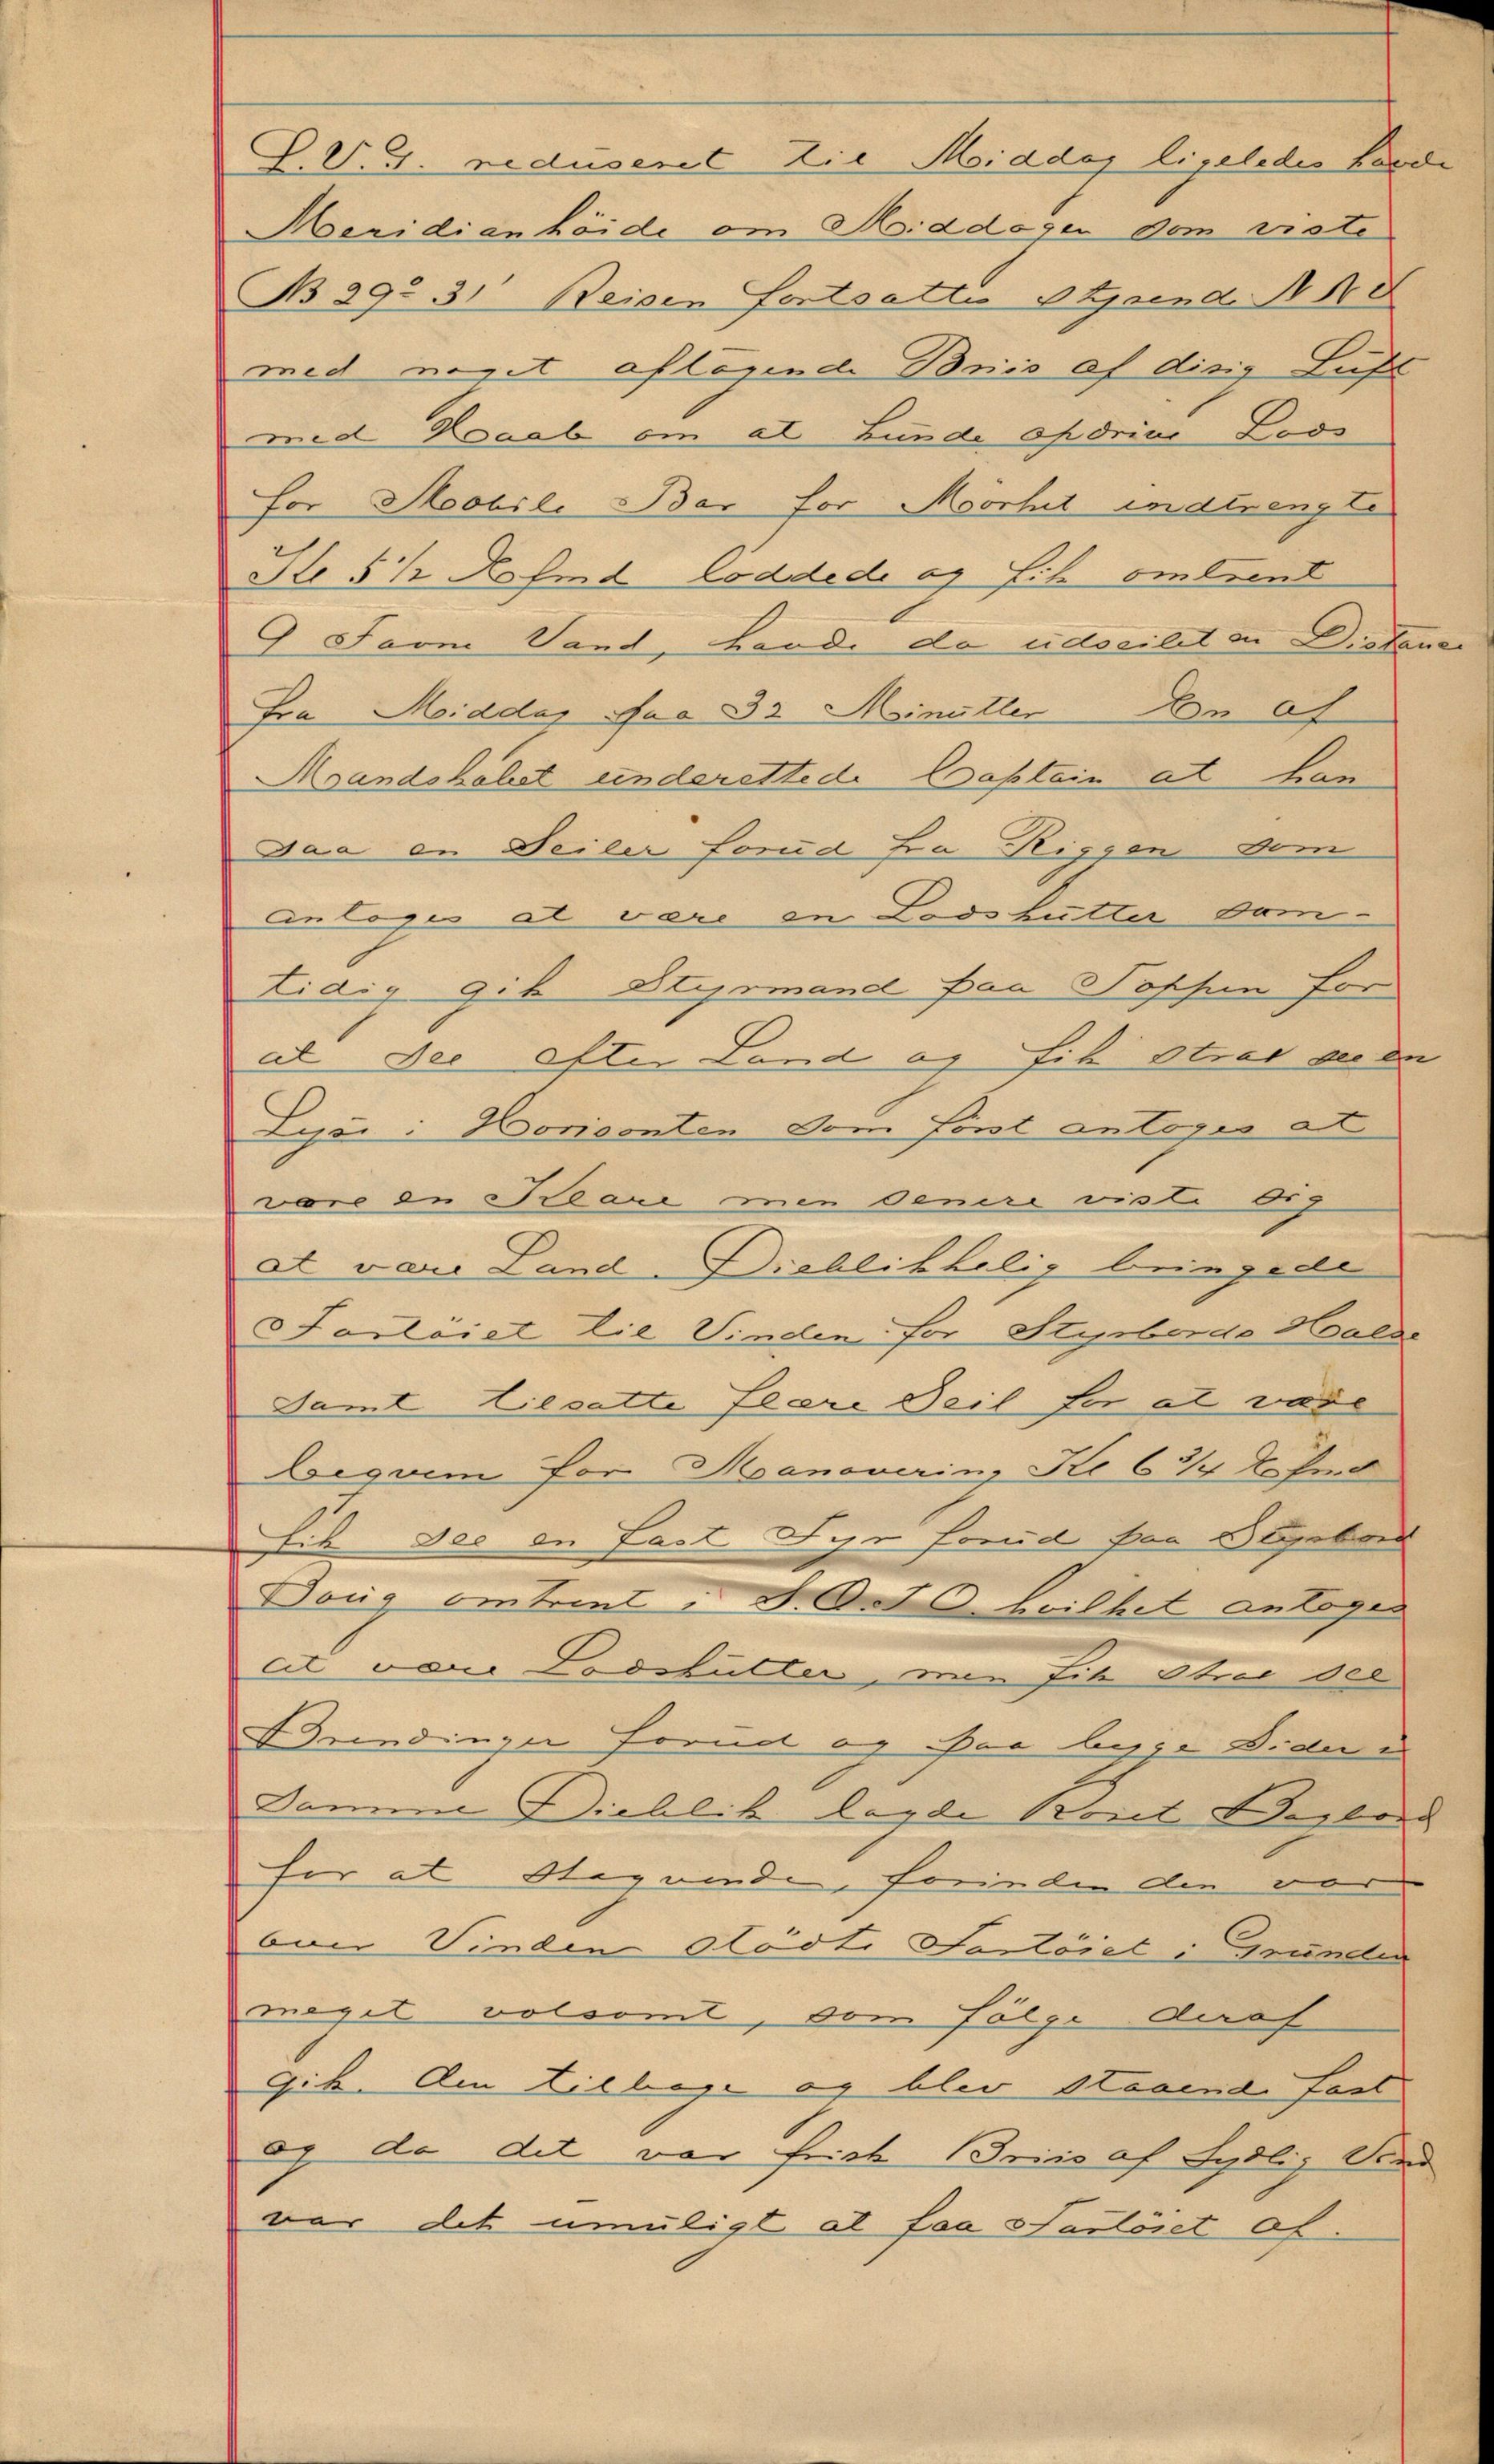 L.V.G. reduseret til Middag ligeledes havde
Meridianhöide om Middagen som viste
B 29° 31' Reisen fortsattes styrende NNO
med noget aftagende Briis af disig Luft
med Haab om at kunde opdrive Lods
for Mobile Bar for Mörket indtrængte
Kl 5 1/2 Efmd loddede og fik omtrent
9 Favne Vand, havde da udseilet en Distance
fra Middag paa 32 Minutter En af
Mandskabet underettede Captain at han
saa en Seiler forud fra Riggen som
antoges at være en Lodskutter sam-
tidig gik Styrmand paa Toppen for
at see efter Land og fik strax see en
Lysn i Horisonten som först antoges at
være en Klare men senere viste sig
at være Land. Öieblikkelig bringede
Fartöiet til Vinden for Styrbords Halse
samt tilsatte flere Seil for at være
beqvem for Manøvering Kl 6 3/4 Efmd
fik see en fast Fyr forud paa Styrbord
Boug omtrent i S.O.t O. hvilket antoges
at være Lodskutter, men fik strax see
Brændinger forud og paa begge Sider i
samme Öieblik lagde Roret Bagbord
for at stagvende, forinden den var
over Vinden stödte Fartöiet i Grunden
meget volsomt, som fölge deraf
gik den tilbage og blev staaende fast
og da det var frisk Briis af Sydlig Vind
var det umuligt at faa Fartöiet af.